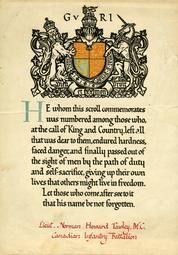 G V R I
HE whom this scroll commemorates
was numbered among those who,
at the call of King and Country, left all
that was dear to them, endured hardness,
faced danger, and finally passed out of
the sight of men by the path of duty
and self-sacrifice, giving up their own
lives that others might live in freedom.
Let those who come after see to it
that his name be not forgotten.
Lieut. Norman Howard M.C.
Canadian Infantry Battalion